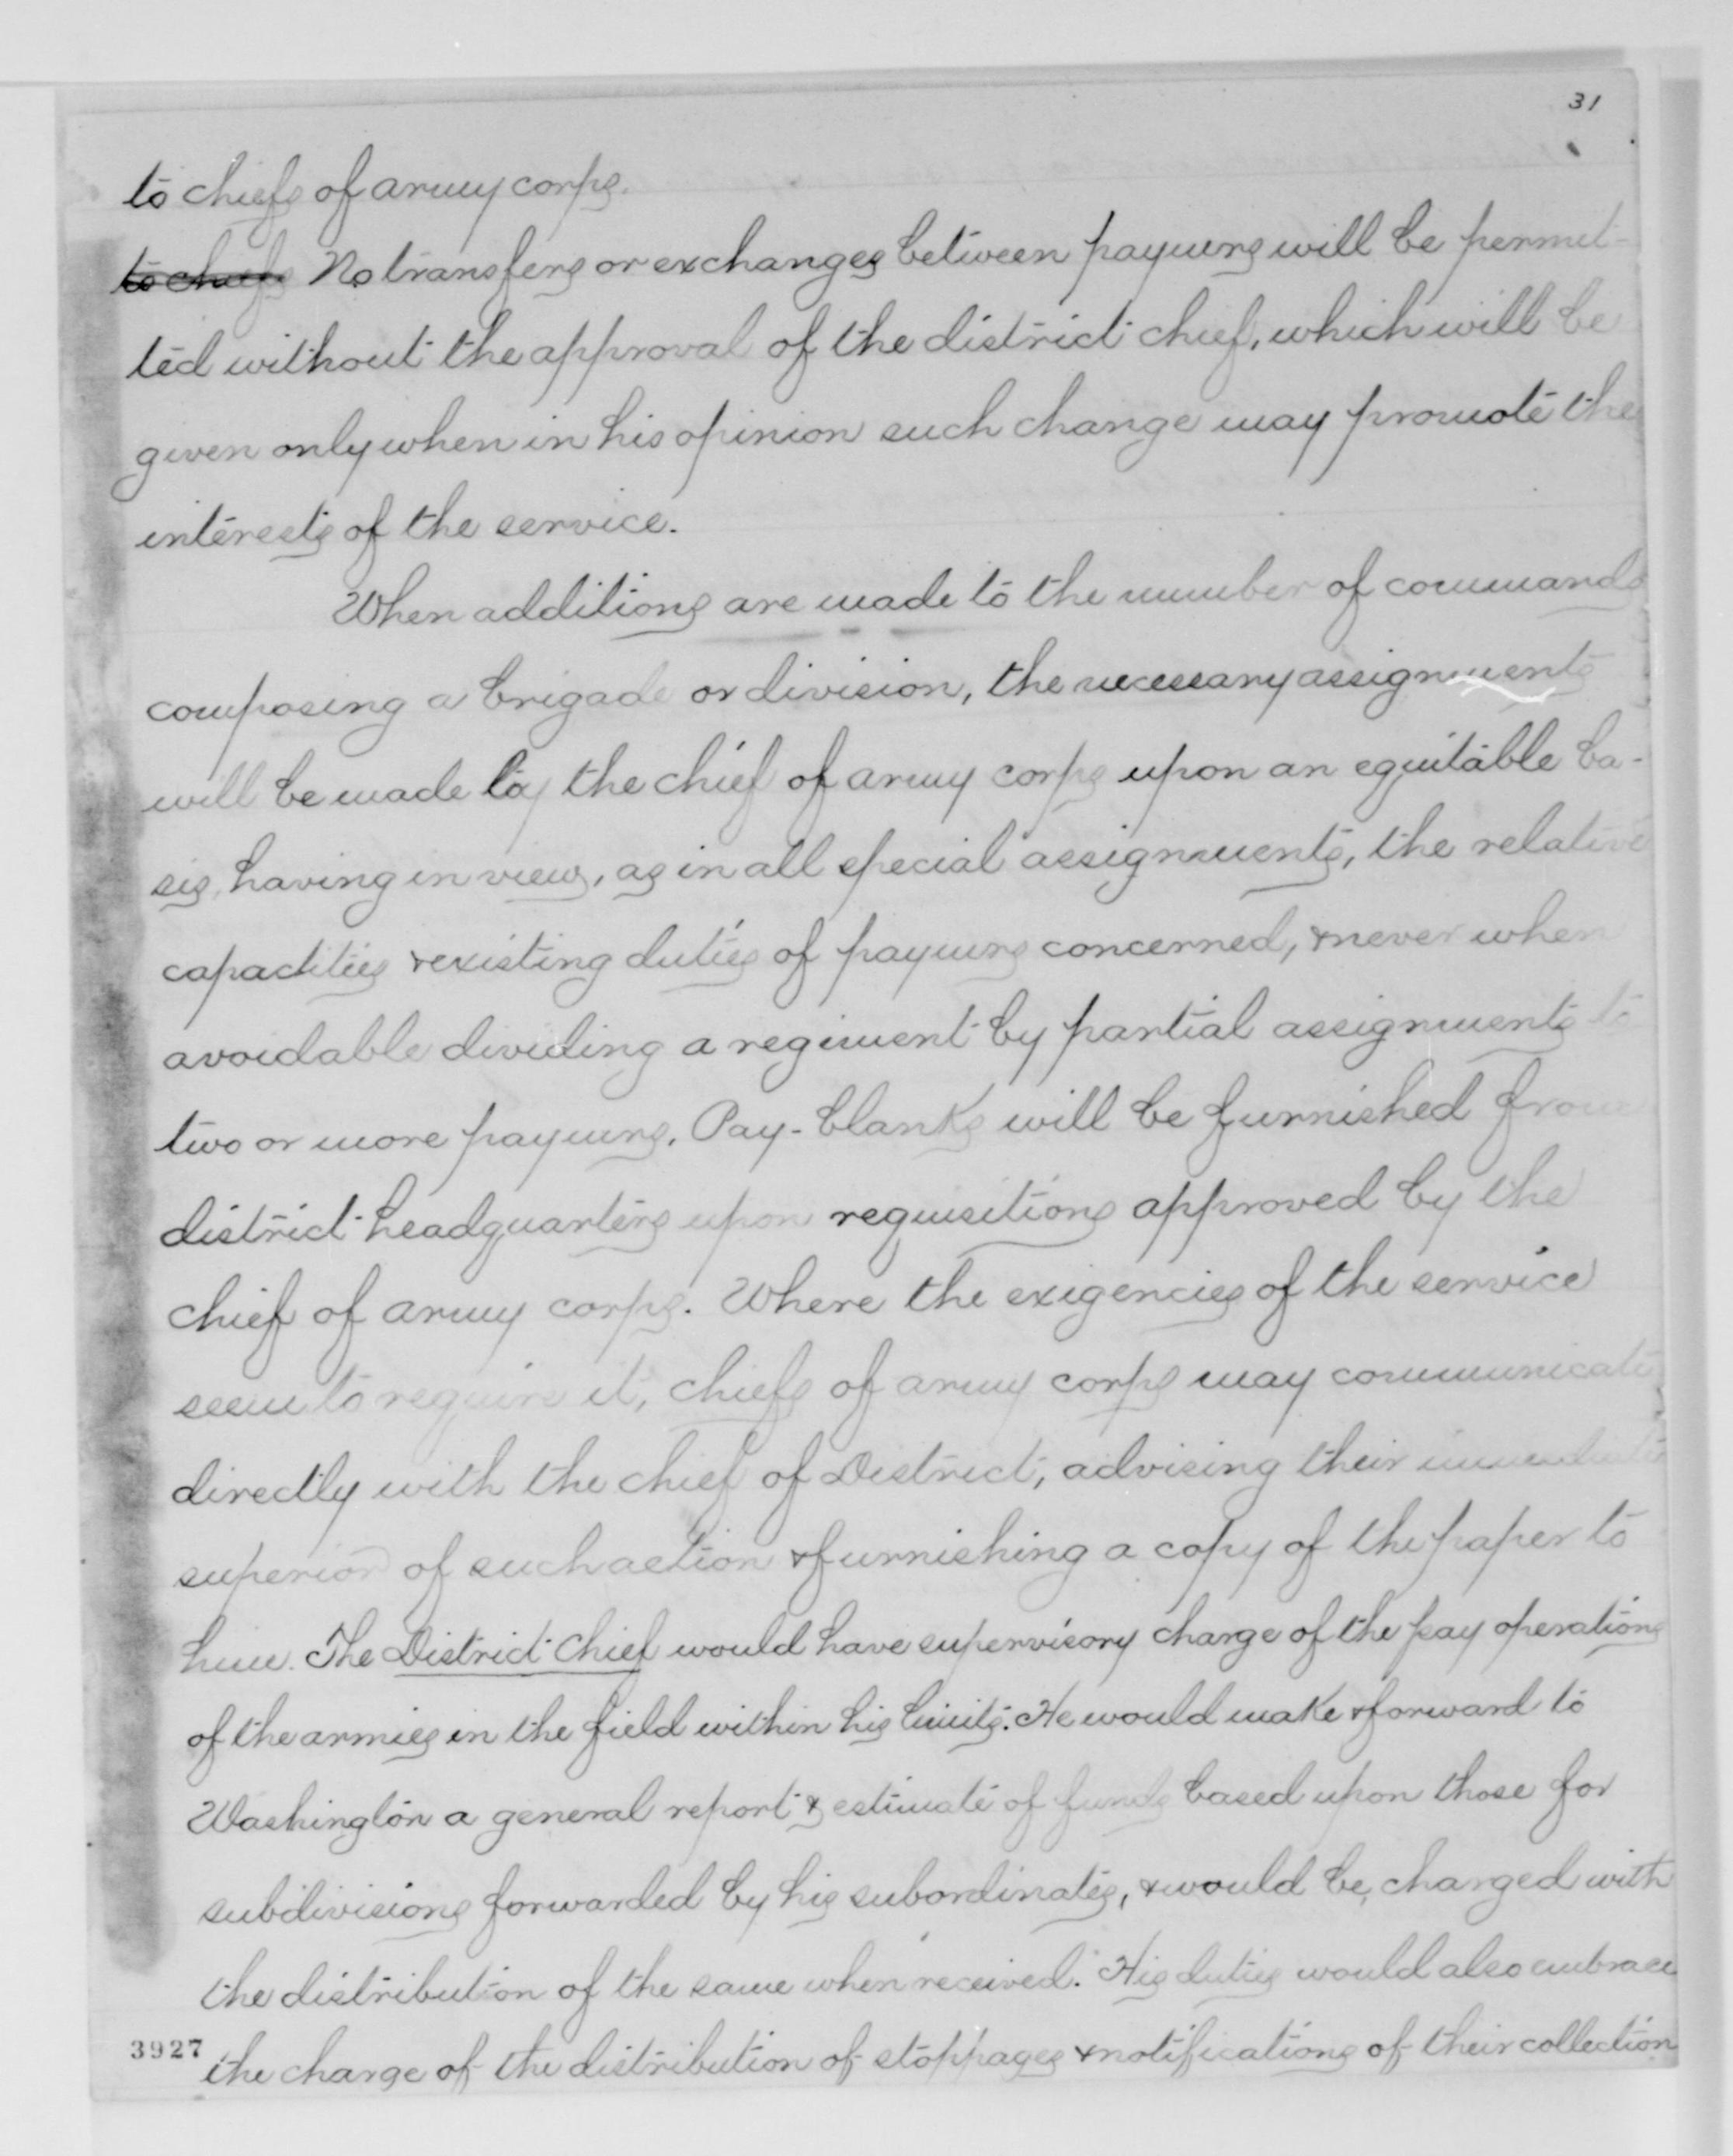 31
to chiefs of army corps.
to chiefs No transfers or exchanges between paymrs will be permit-
ted without the approval of the district chief, which will be
given only when in his opinion such change may promote the
interests of the service.
When additions are made to the number of commands
composing a brigade or division, the necessary assignments
will be made by the chief of army corps upon an equitable ba-
sis, having in view, as in all special assignments, the relative
capacities & existing duties of paymrs concerned, & never when
avoidable dividing a regiment by partial assignments to
two or more paymrs. Pay-blanks will be furnished from
district headquarters upon requisitions approved by the
chief of army corps. Where the exigencies of the service
seem to require it, chiefs of army corps may communicate
directly with the chief of District, advising their immediate
superior of such action & furnishing a copy of the paper to
him. The District Chief would have supervisory charge of the pay operations
of the armies in the field within his limits. He would make & forward to
Washington a general report & estimate of funds based upon those for
subdivisions forwarded by his subordinates, & would be, charged with
the distribution of the same when received. His duties would also embrace
3927 the charge of the distribution of stoppages & notifications of their collection